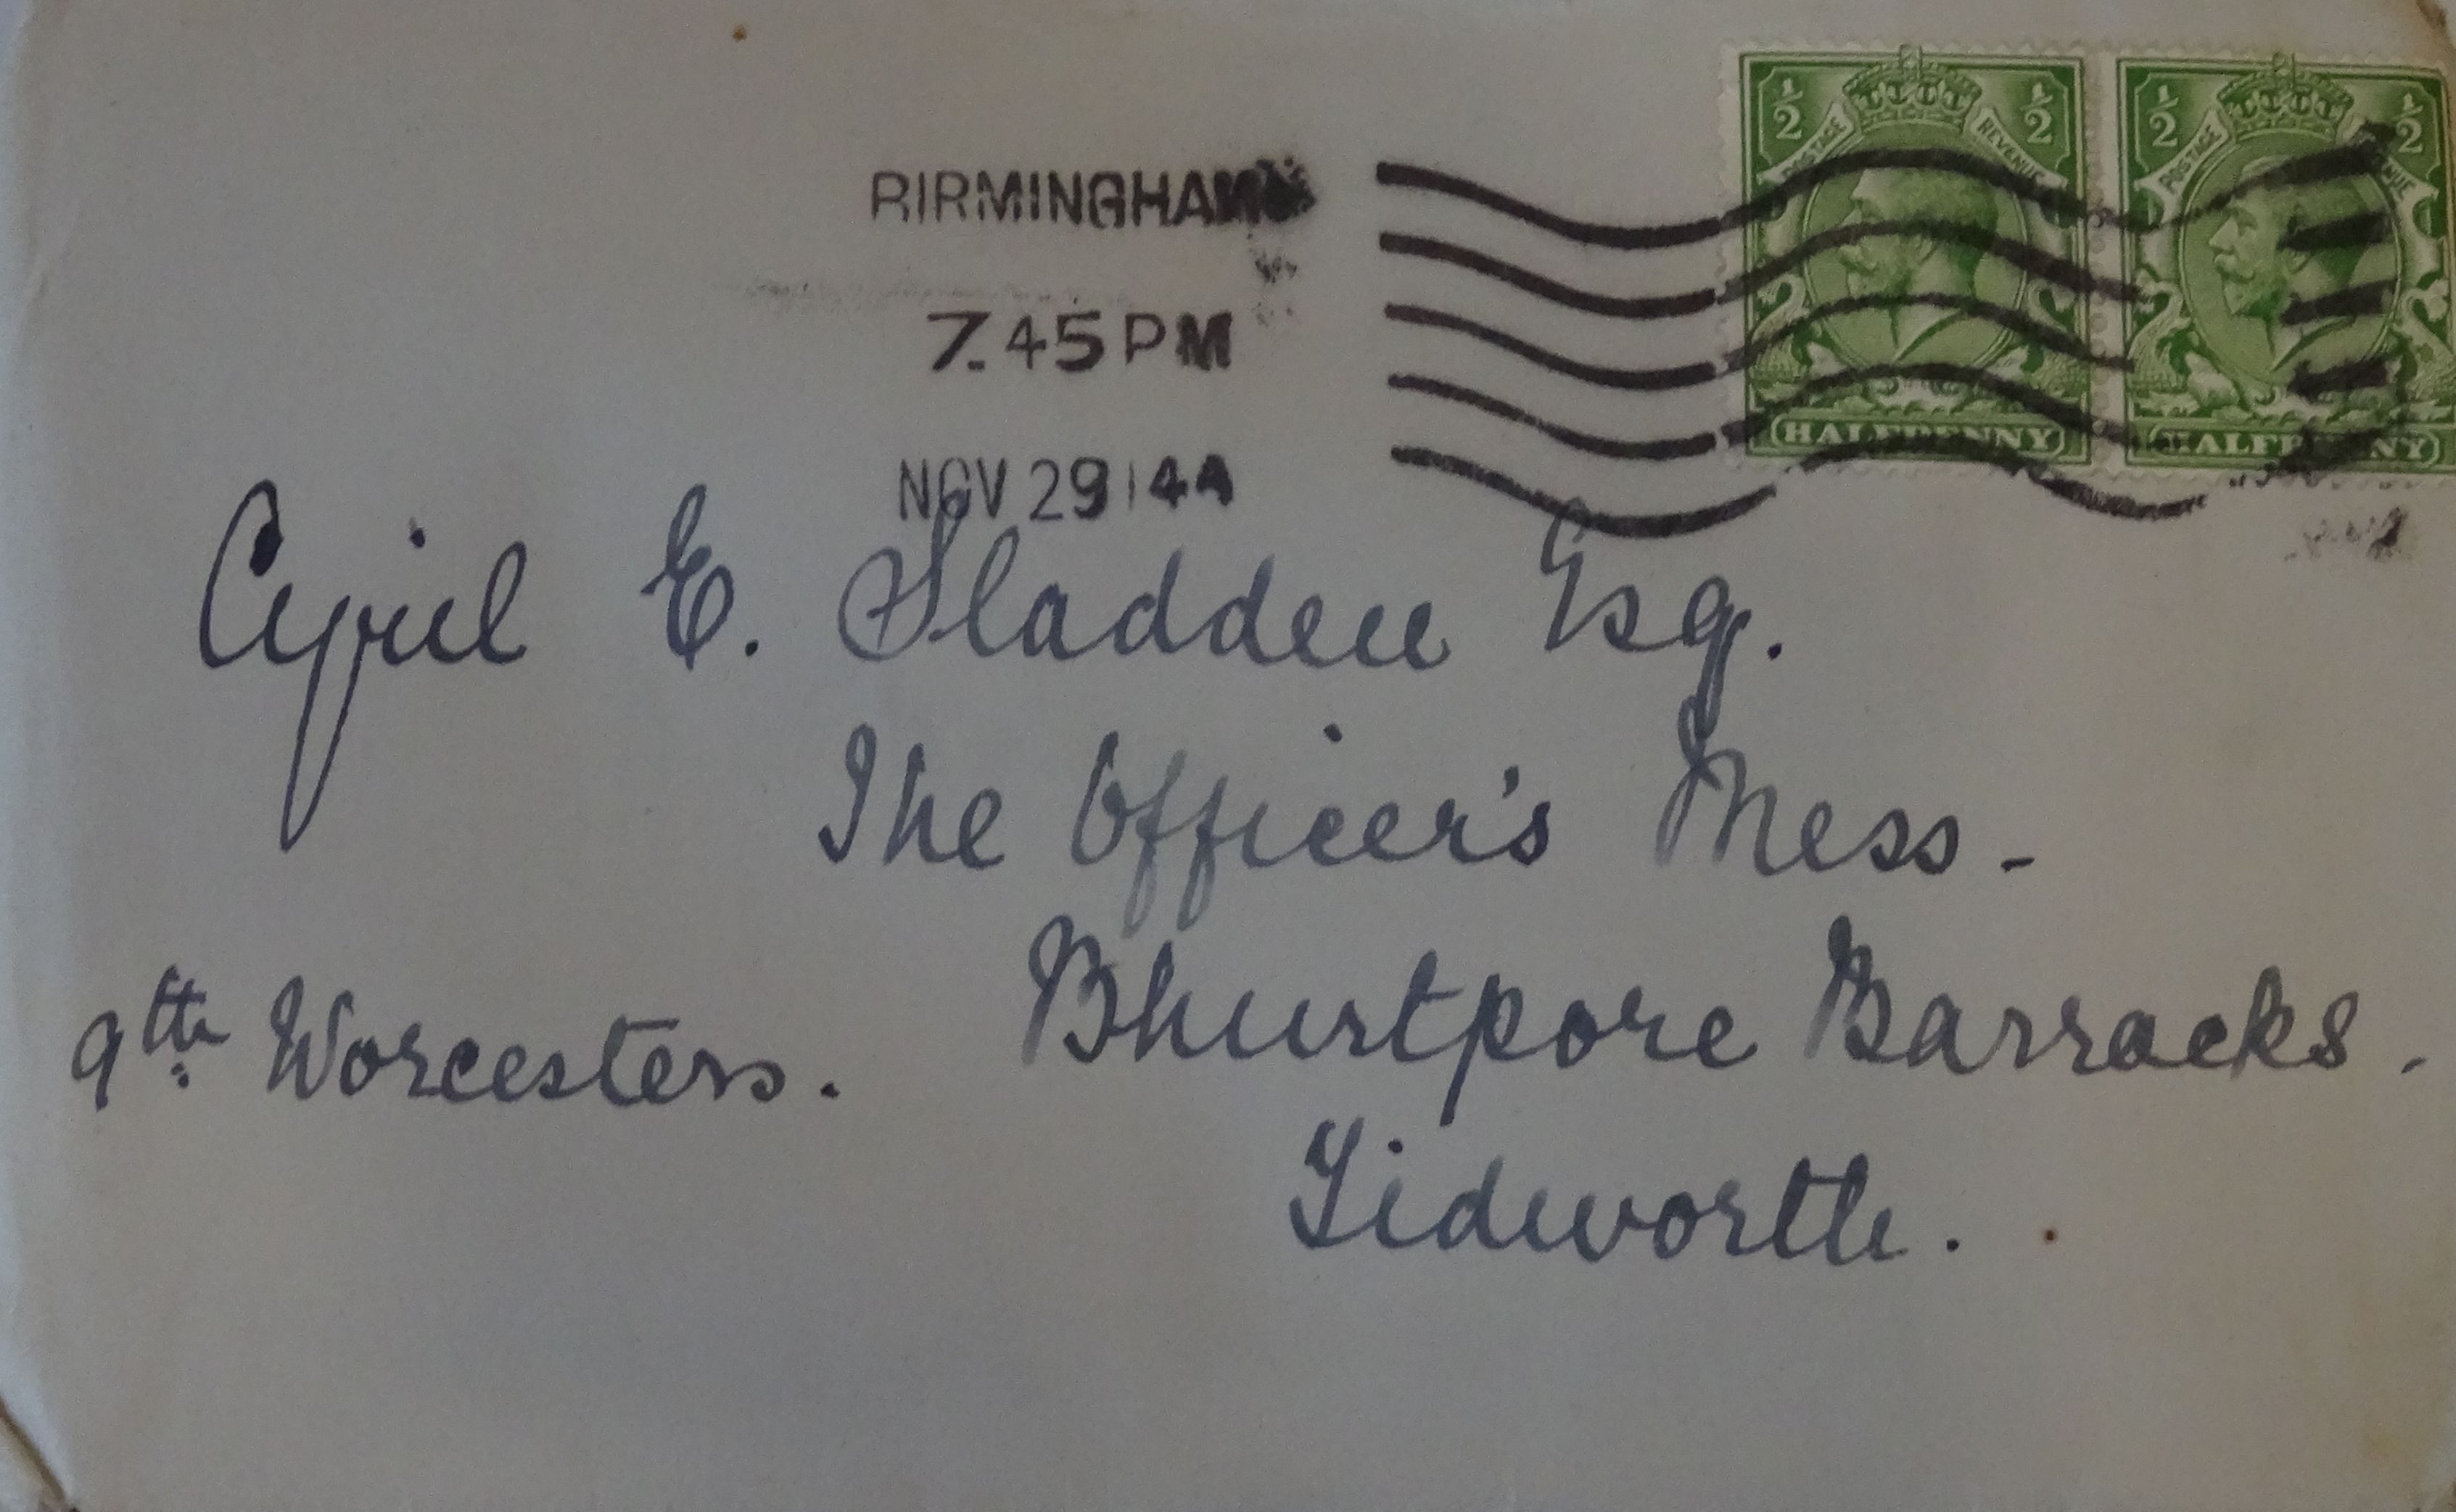 ½ POSTAGE REVENUE ½ ½ POSTAGE REVENUE ½
BIRMINGHAM
7.45PM
NOV 29 14
HALFPENNY HALFPENNY
Cyril E. Sladden Esq.
The Officer's Mess -
Bhurtpore Barracks.
9th Worcesters.
Tidworth.